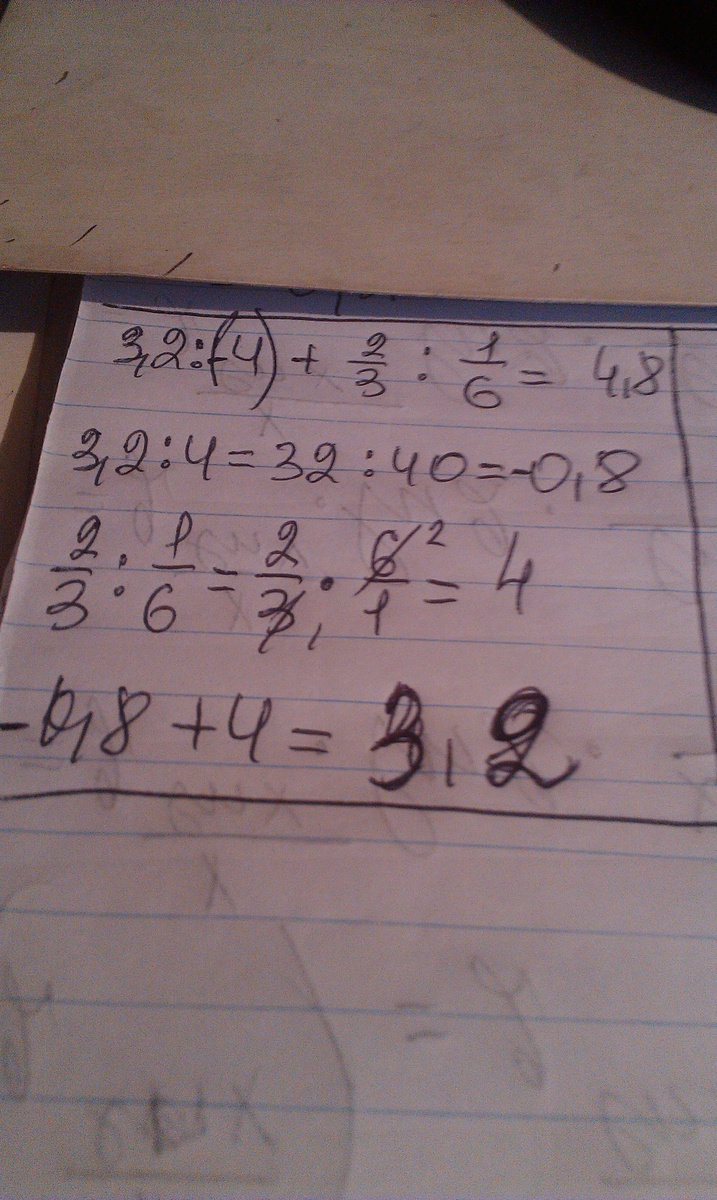 3,2:(-4) + 2/3 : 1/6 = 4,8
3,2:4=32:40=-0,8
2/3 : 1/6 = 2/3 1 · 6 2/1 = 4
-0,8+4=3,2